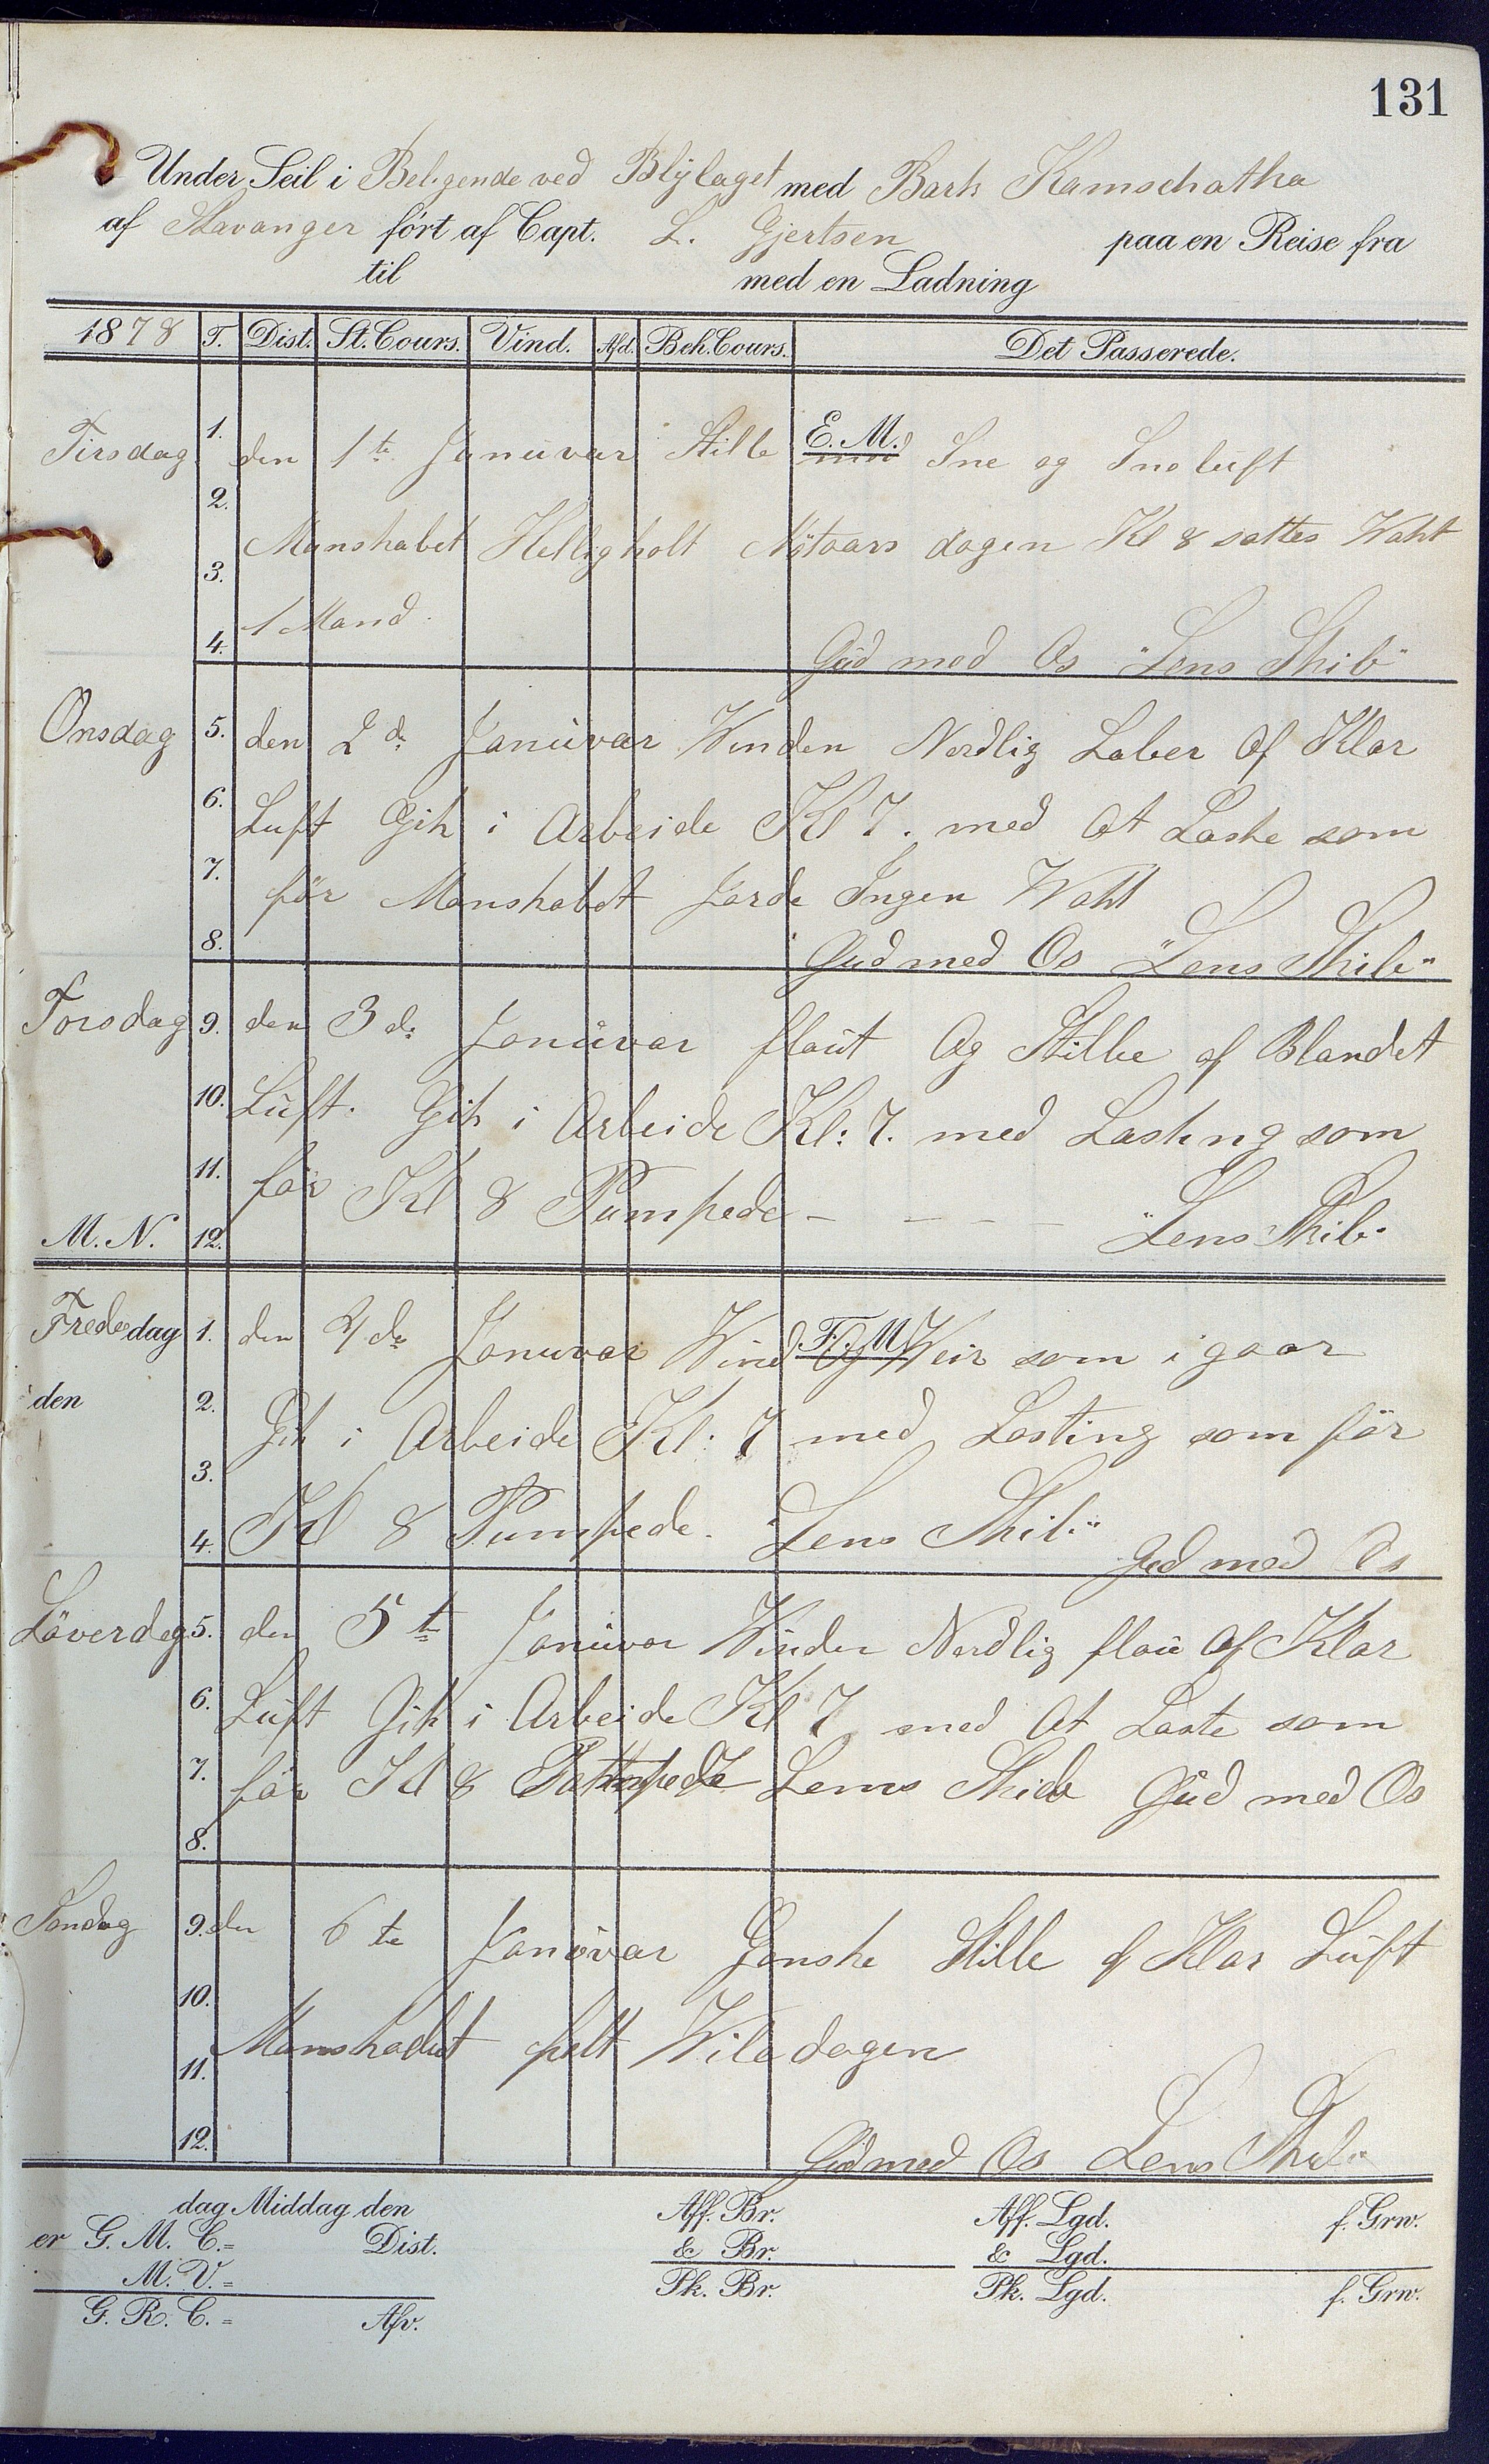 131
Under Seil i Beligende ved Blylaget med Bark Kamschatka
af Stavanger fört af Capt. L. Gjertsen paa en Reise fra
til med en Ladning
1878 T. Dist. St. Cours. Vind. Afd. Beh. Cours. Det Passerede.
E. M.
Tirsdag 1. den 1te Januvar Stille med Sne og Sno luft
2.
Manskabet Helligholt Nÿtaars dagen Kl 8 sattes Wakt
3.
1 Mand.
4. Gud med Os "Lens Skib"
Onsdag 5. den 2de Januvar Winden Nordlig Laber Af Klar
6. Luft Gik i Arbeide Kl 7. med At Laste som
7. för Manskabet Jorde Ingen Wakt
8. Gud med Os "Lens Skib"
Torsdag 9. den 3de Januvar flaut Og Stille af Blandet
10. Luft. Gik i Arbeide Kl: 7. med Lastning som
11. för Kl 8 Pumpede - - - - "Lens Skib"
M. N. 12.
F. M.
Fredesdag 1. den 4de Januvar Wind Og Weir som i gaar
den 2. Gik i Arbeide Kl: 7 med Lasting som för
3.
4. Kl 8 Pumpede. "Lens Skib" Gud med Os
Löverdag 5. den 5te Januvar Winden Nordlig flau Af Klar
6. Luft Gik i Arbeide Kl 7 med At Laste som
7. för Kl 8 Pumpede Lens Skib Gud med Os
8.
Sondag 9. den 6te Januvar Ganske Stille af Klar Luft
10.
Manskabet Wiledagen
11.
12. Gud med Os Lens Skib"
dag Middag den Aff. Br. Aff. Lgd. f. Grw.
er G. M. C.= Dist. & Br. & Lgd.
M. V.= Pk. Br. Pk. Lgd. f. Grw.
G. R. C.= Afv.